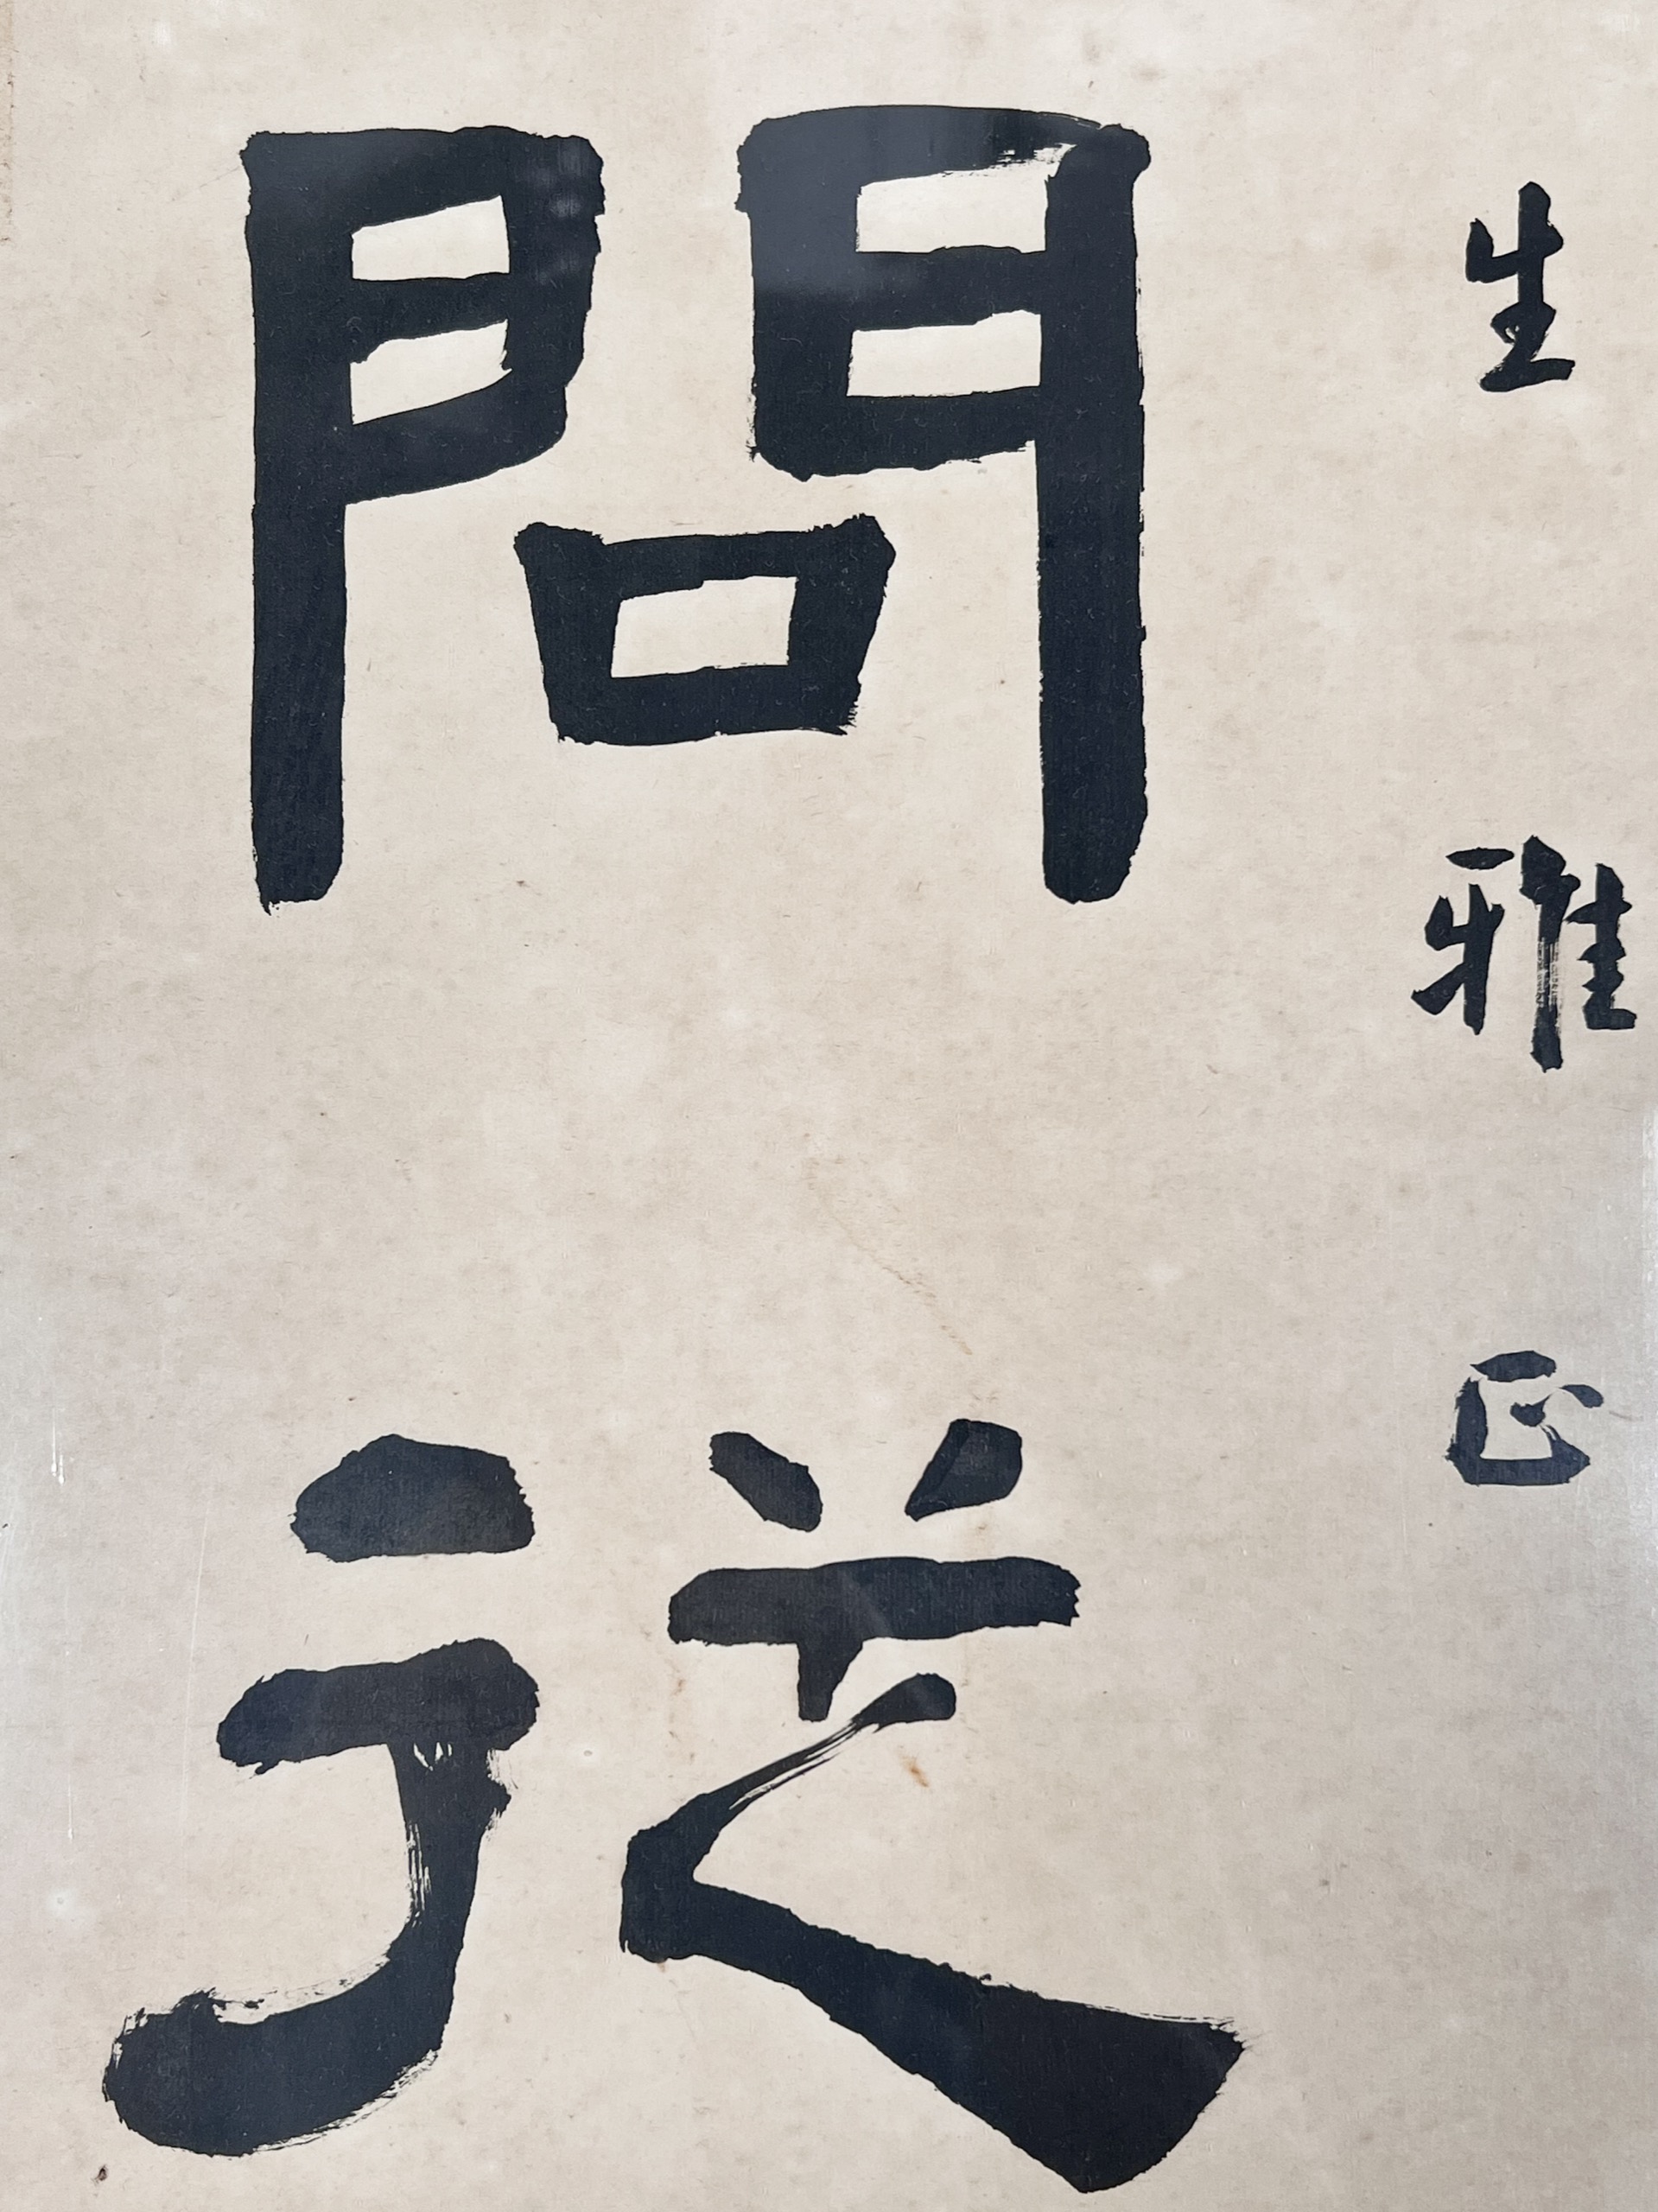 生雅正
問